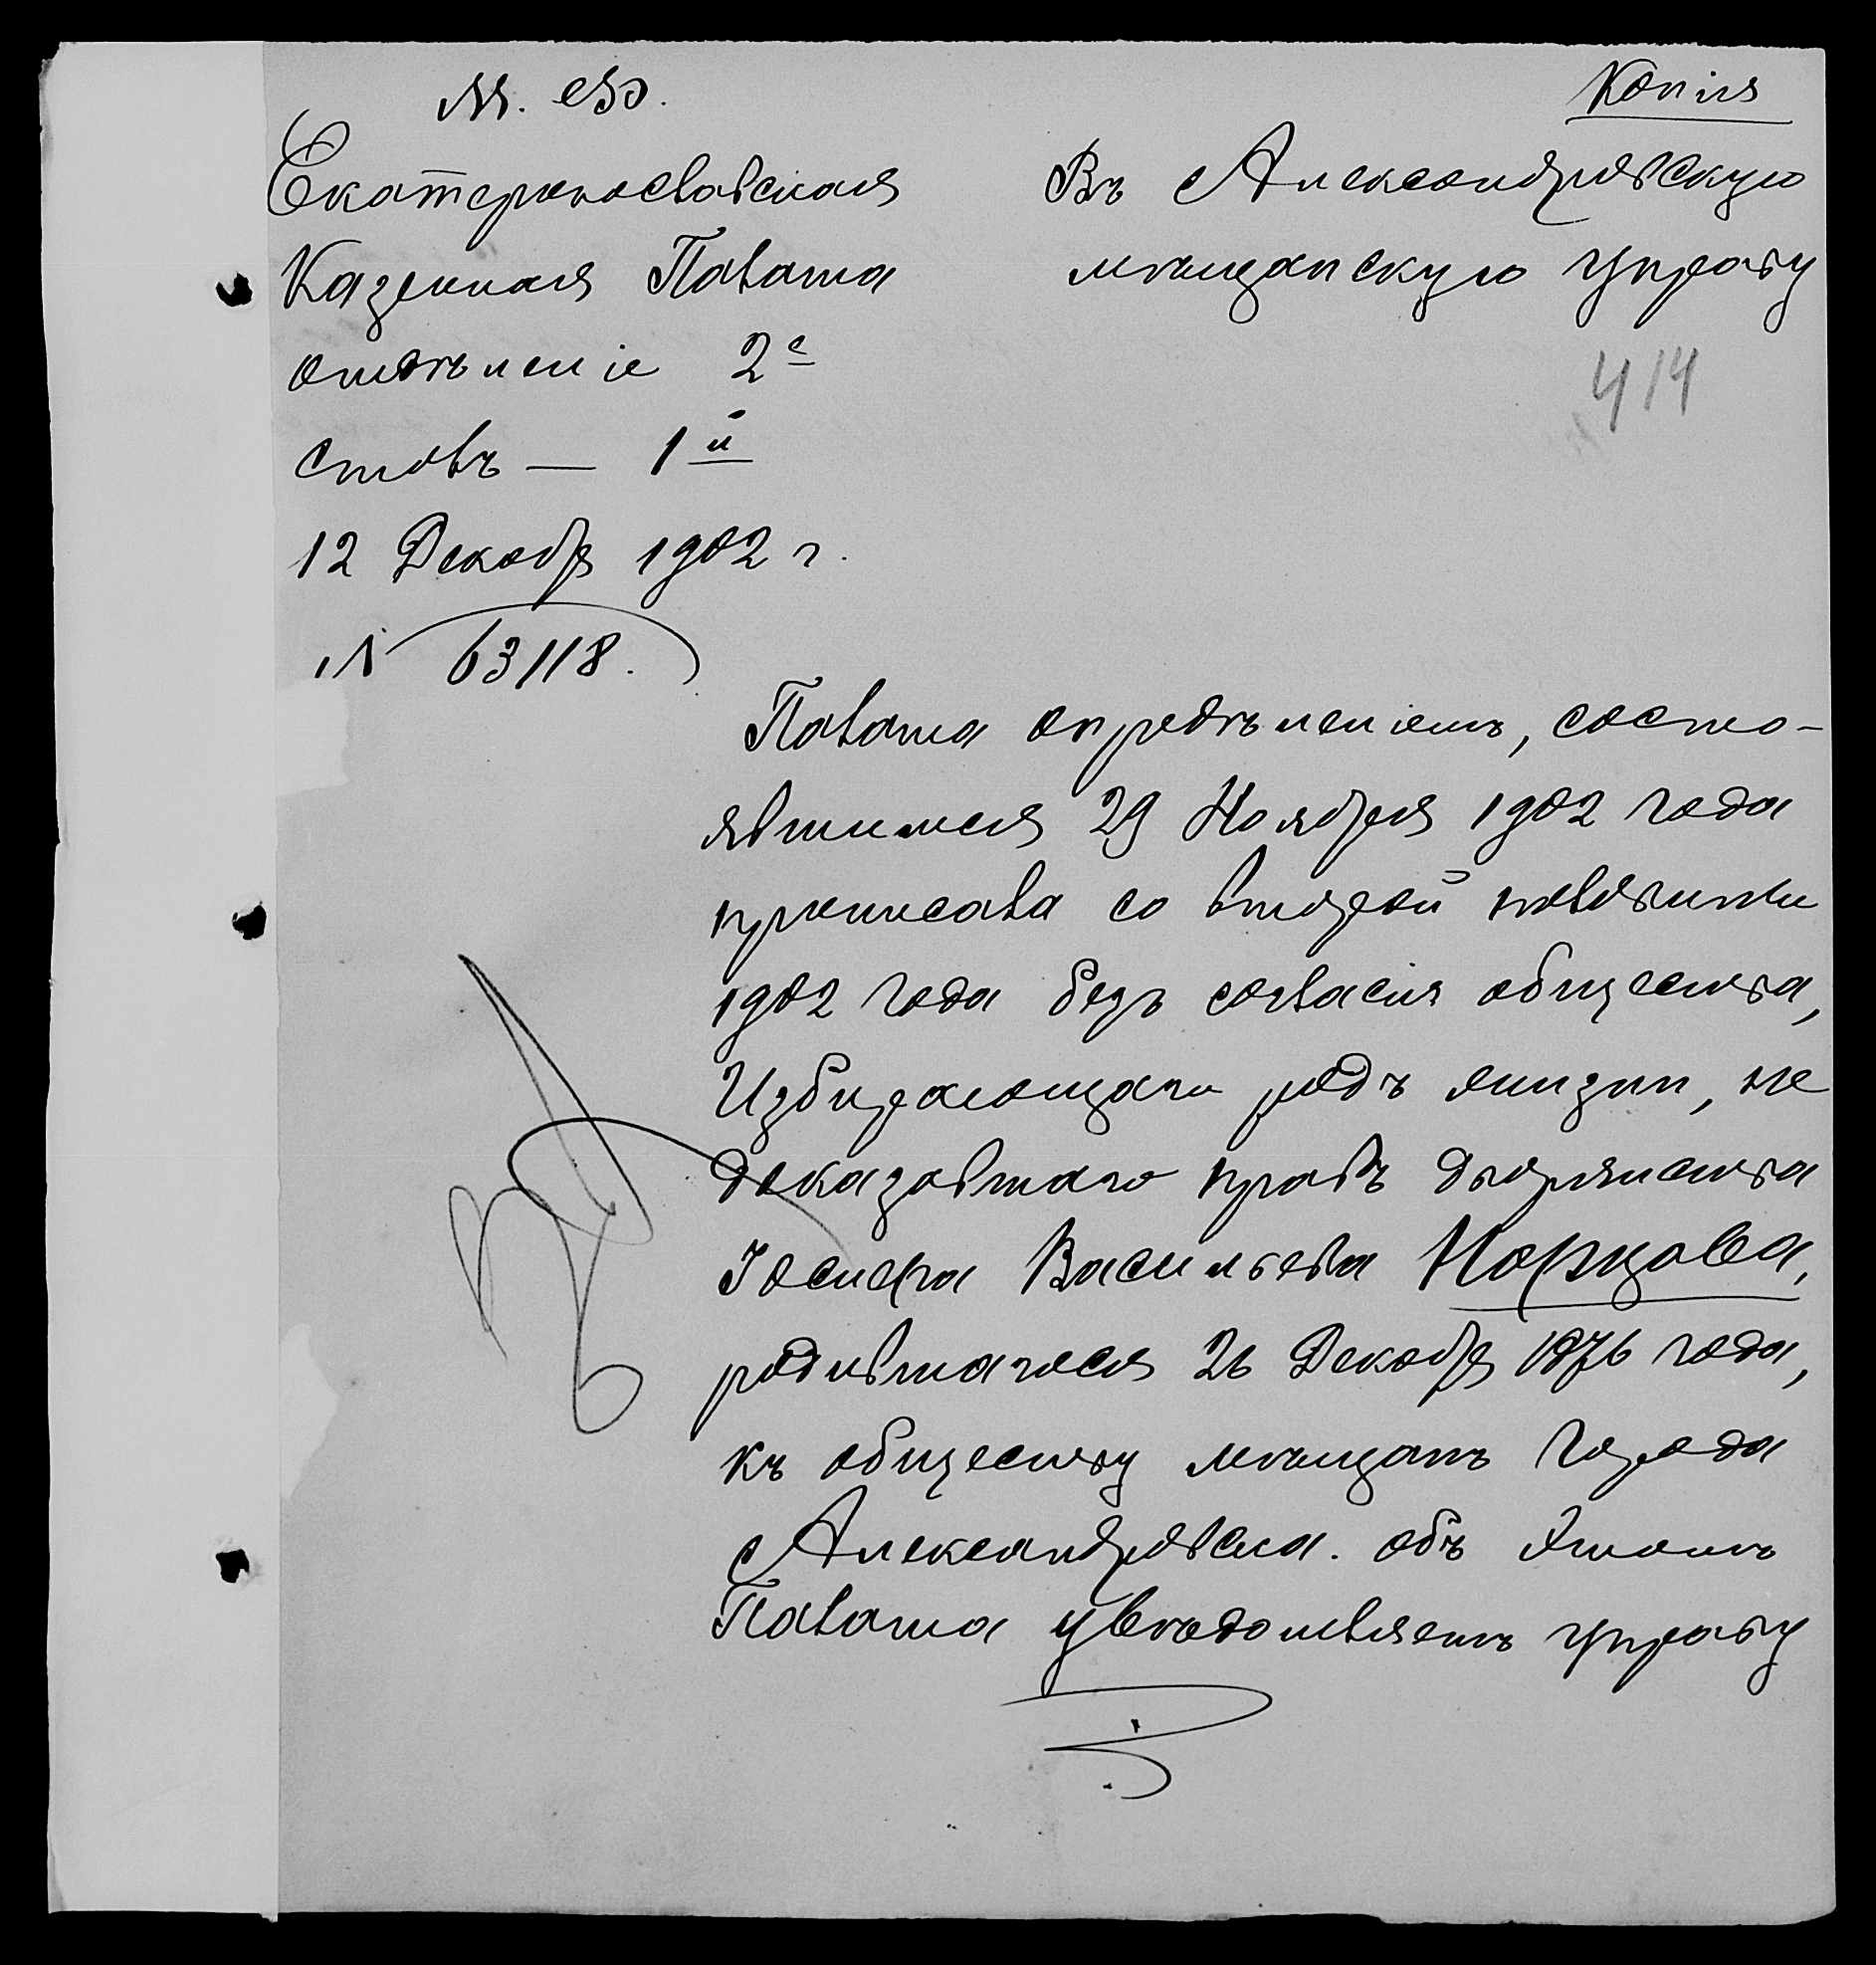 М. Ф.
Екатеринославская
Казенная Палата
отдѣленіе 2е
столъ — 1й
12 Декабр 1902 г.
№ 63118.
Копия
Въ Александровскую
мѣщанскую управу
414
Палата опредѣленіемъ, состо-
явшимся 29 Ноября 1902 года
приписала со второй половины
1902 года безъ согласія общества,
Избирающаго родъ жизни, не
доказавшаго правъ дворянства
Іосифа Васильева
родившагося 26 Декабр 1876 года,
къ обществу мѣщанъ города
Александровска. объ этомъ
Палата увѣдомляетъ управу